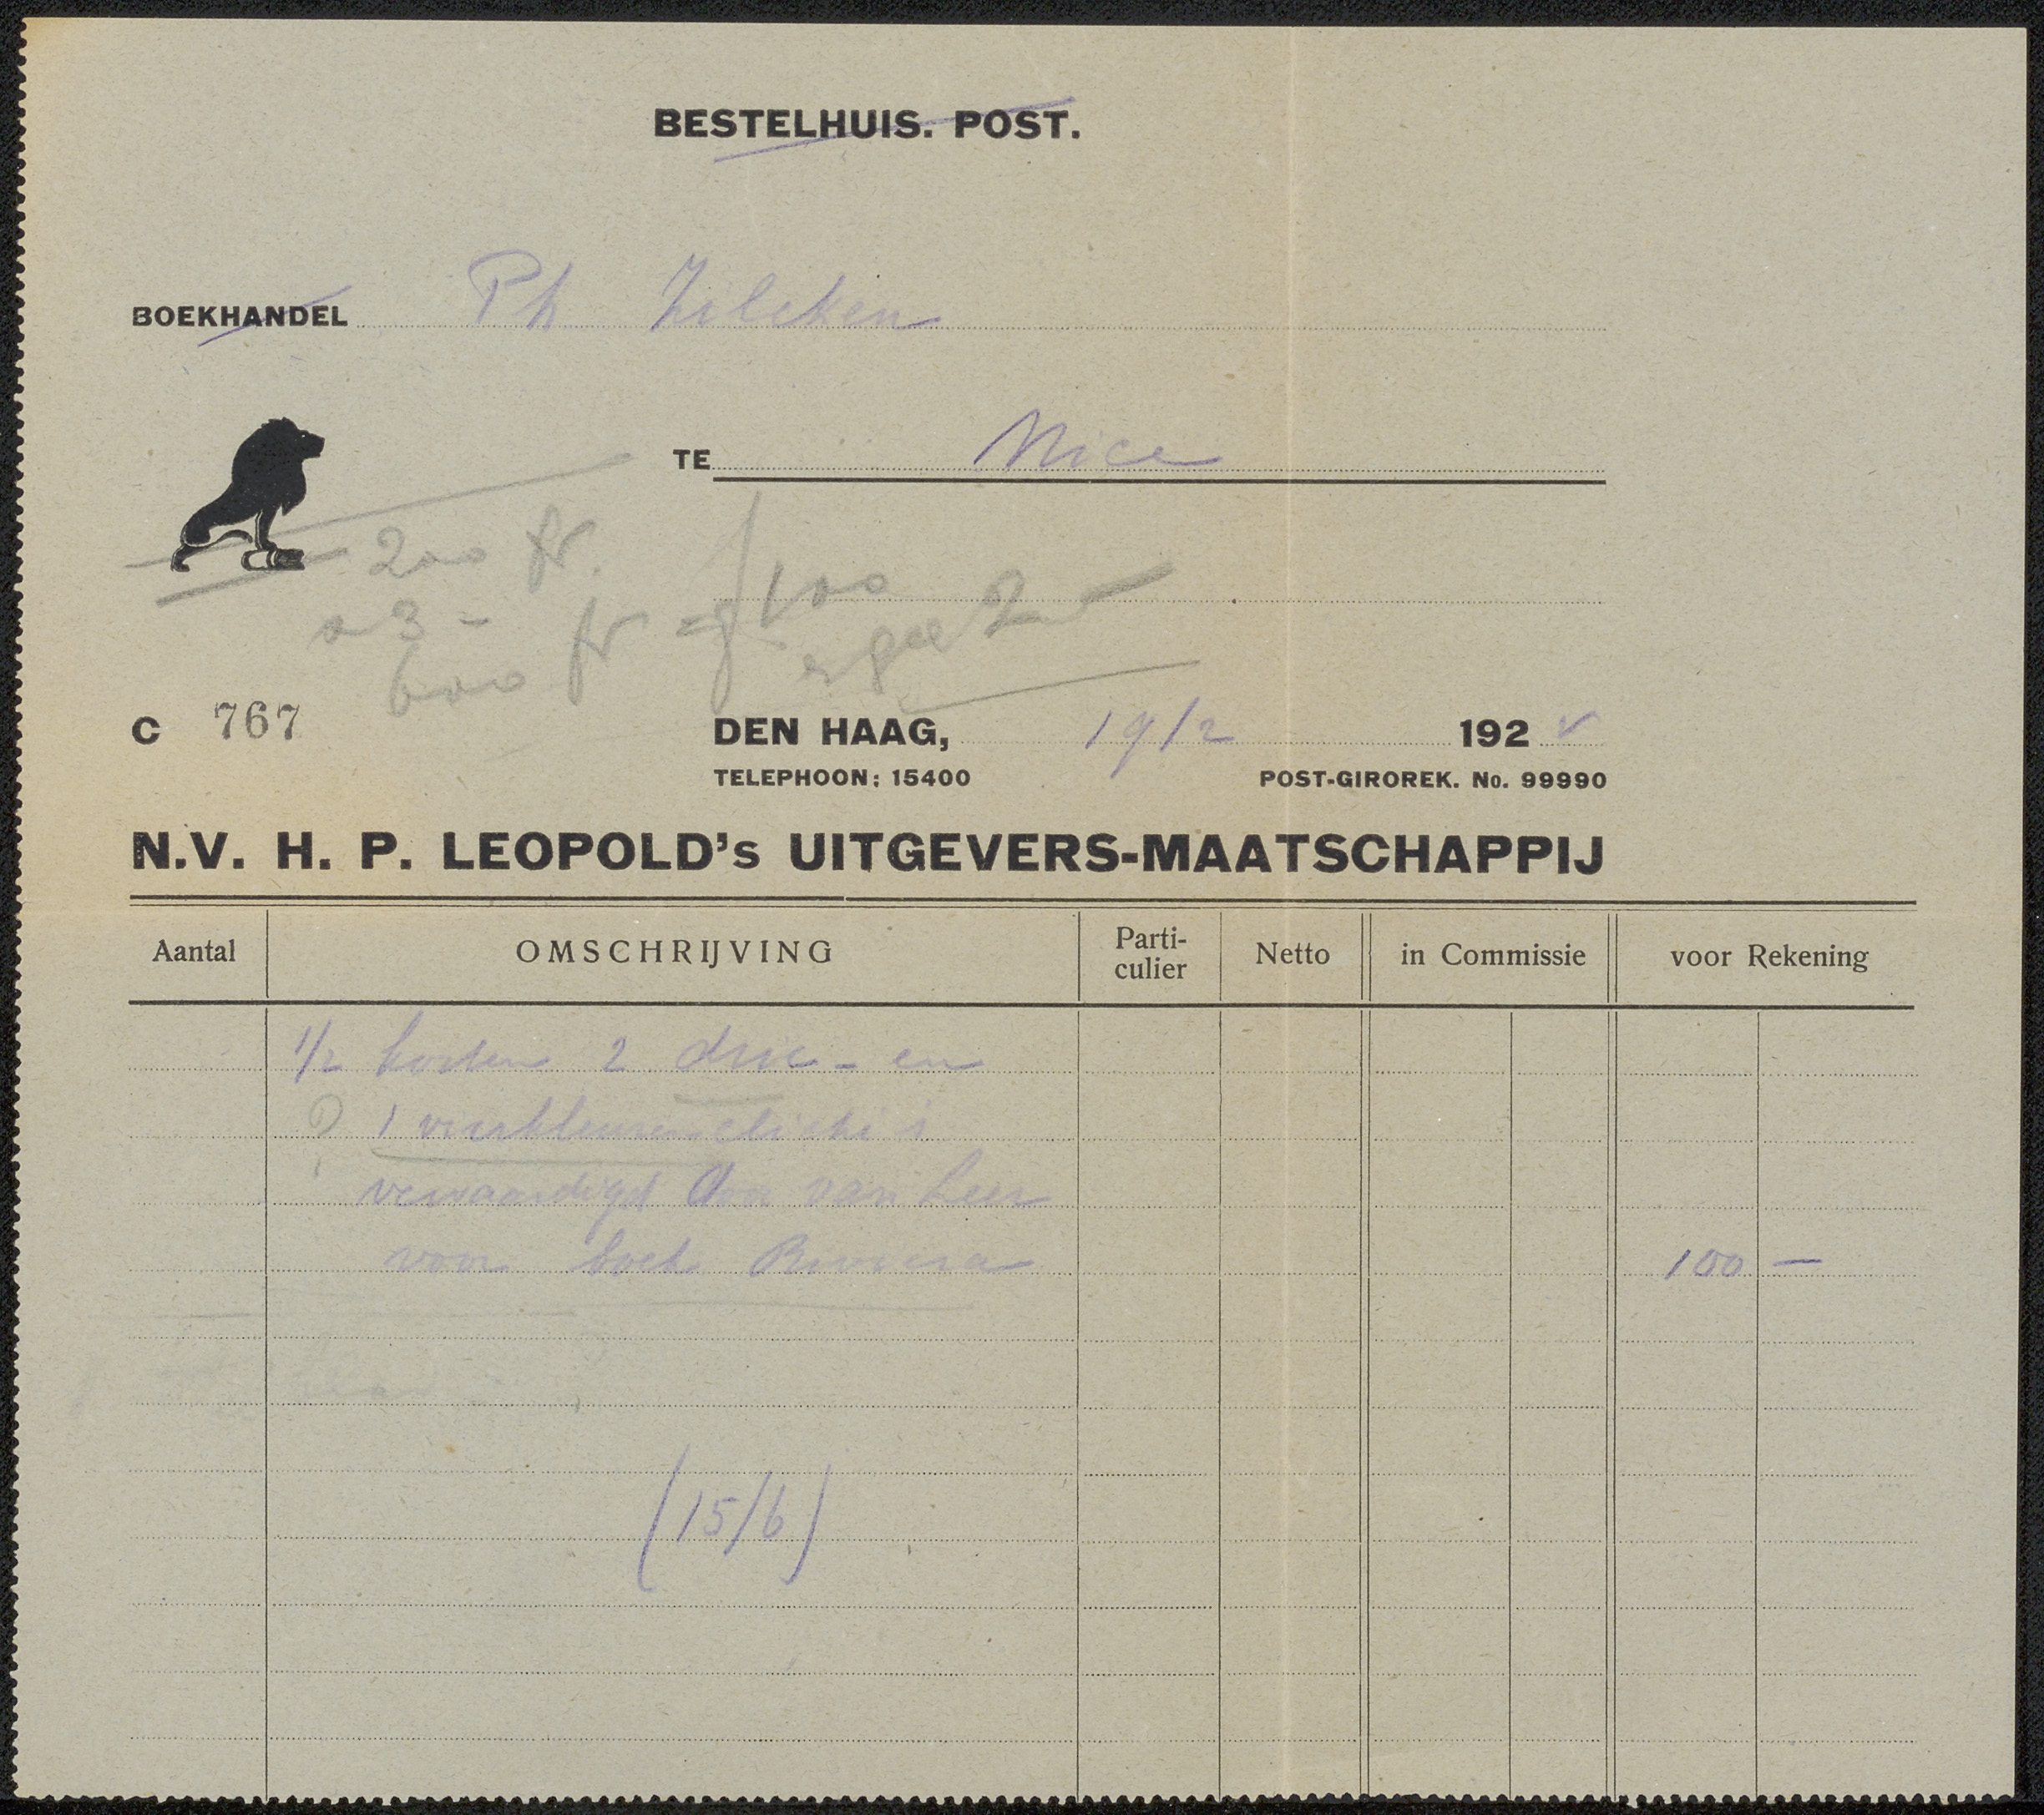 BESTELHUIS. POST.
BOEKHANDEL Ph Zilcken
TE Nice
200 fr.
a 3 -
600 fr = f 100
C 767
DEN HAAG, 19/2 192
TELEPHOON: 15400 POST-GIROREK. No. 99990
N.V. H. P. LEOPOLD's UITGEVERS-MAATSCHAPPIJ
Aantal OMSCHRIJVING Parti-culier Netto in Commissie voor Rekening
1/2 kosten 2 drie - en
? 1 vierkleurencliché's
vervaardigd door van Leer
voor boek Riviera 100 —
(15/6)